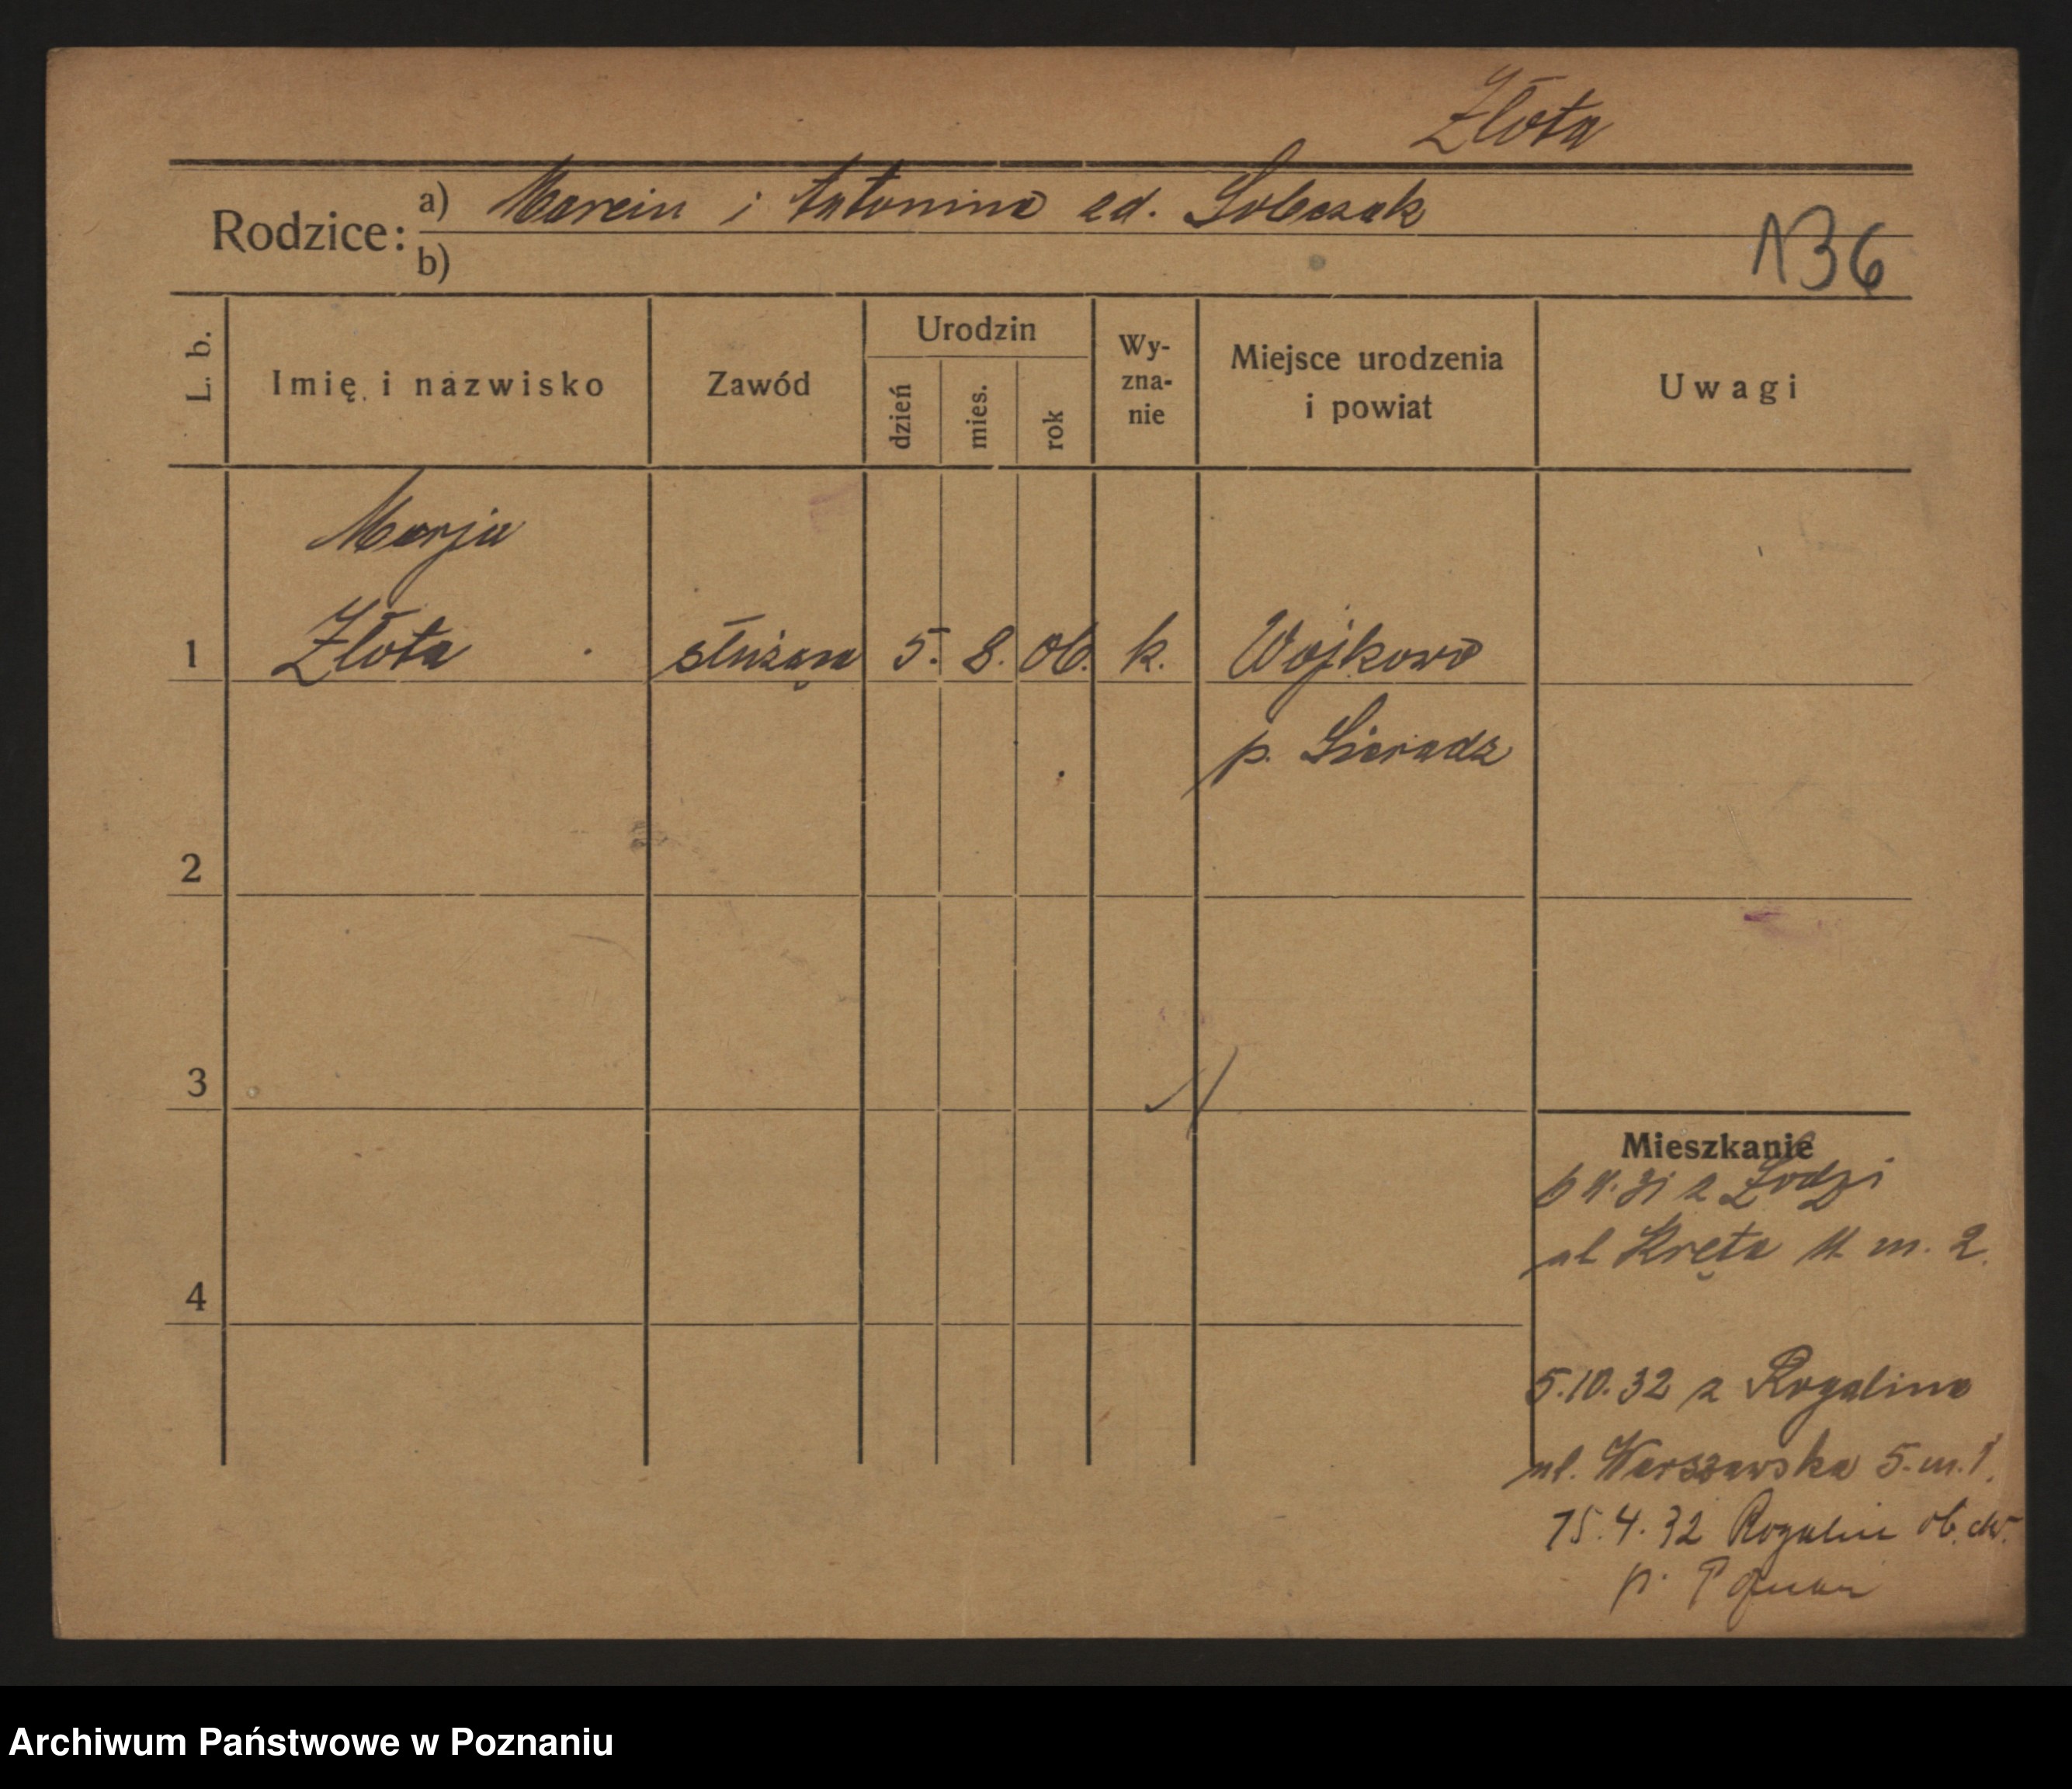 Złota
Rodzice: a) Marcin i Antonina zd. Sobczak
b)
136
L. b. Imię i nazwisko Zawód Urodzin dzień mies. rok Wy-zna-nie Miejsce urodzenia i powiat Uwagi
Marja
1 Złota służąca 5. 8. 06. k. Wojkowo
p. Sieradz
2
3
Mieszkanie
z Łodzi
ul Kręta 11 m. 2.
4
5.10.32 z Rogalina
ul. Warszawska 5. m. 1.
15.4.32 Rogalin
p.
Archiwum Państwowe w Poznaniu